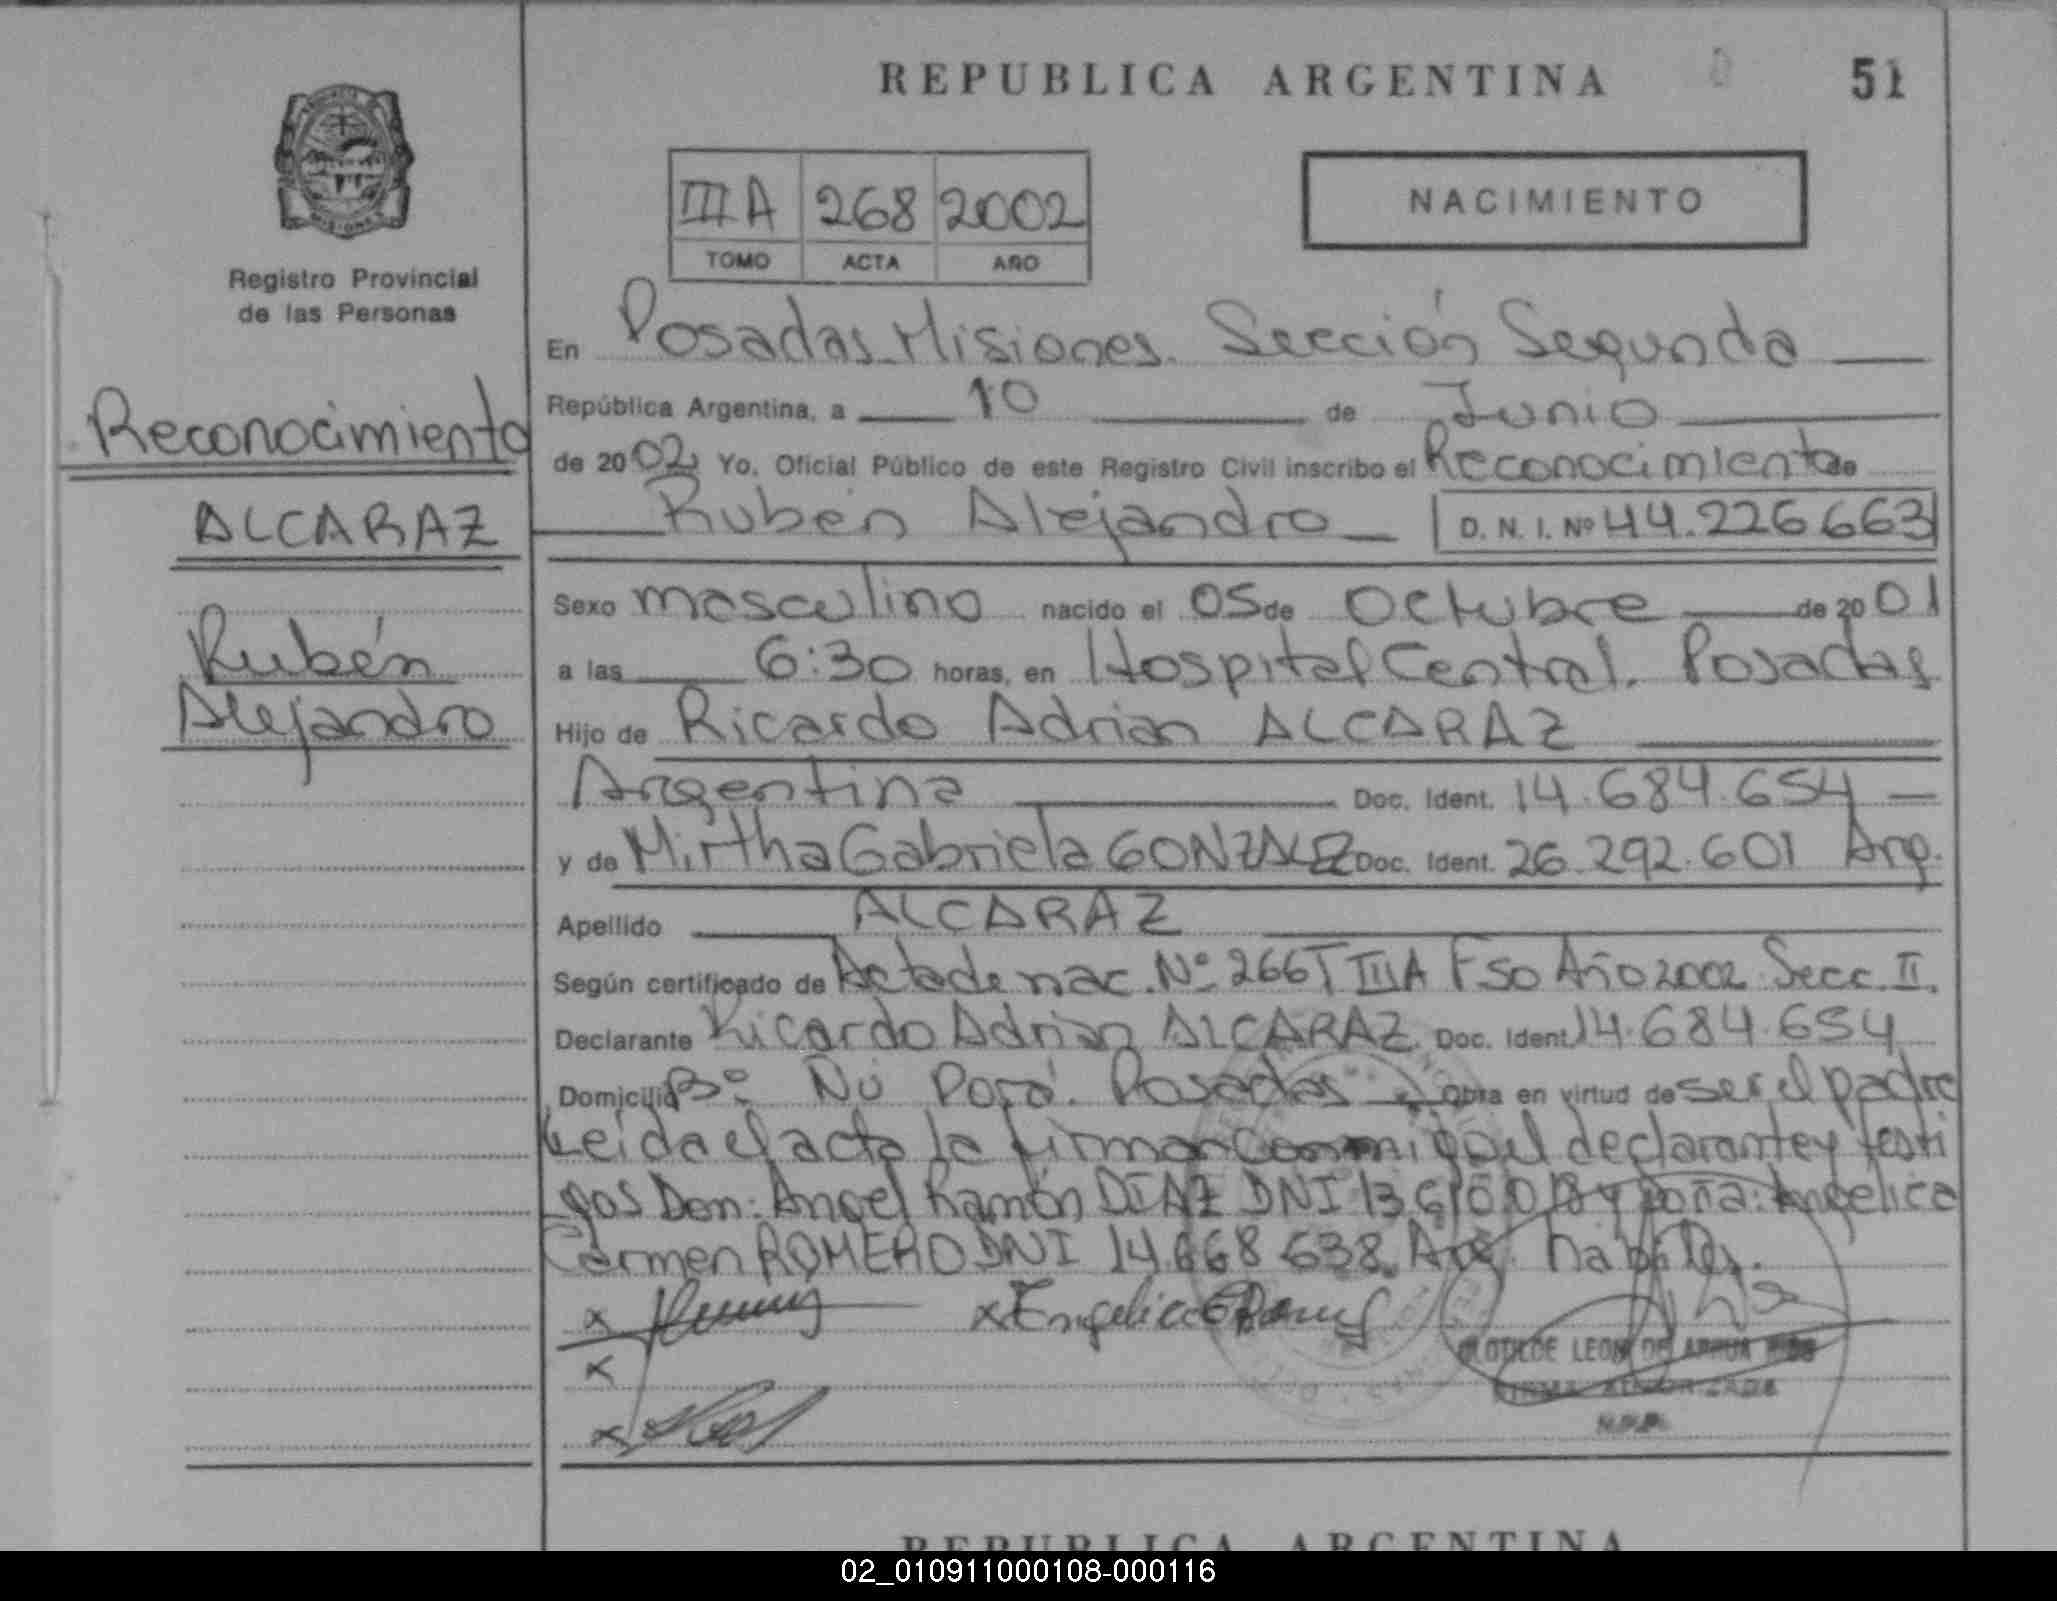 REPUBLICA ARGENTINA
51
III A 268 2002
TOMO ACTA AÑO
NACIMIENTO
Registro Provincial
de las Personas
Reconocimiento
ALCARAZ
Rubén
Alejandro
En Posadas Misiones. Sección Segunda
República Argentina, a 10 de Junio
de 2002 Yo, Oficial Público de este Registro Civil inscribo el Reconocimiento de
Rubén Alejandro D. N. I. Nº 44.226663
Sexo masculino nacido el 05 de Octubre de 2001
a las 6:30 horas, en Hospital Central. Posadas
Hijo de Ricardo Adrian ALCARAZ
Argentina Doc. Ident. 14.684.654
y de Mirtha Gabriela GONZALEZ Doc. Ident. 26.292.601 Arg.
Apellido ALCARAZ
Según certificado de Acta de nac. Nº 266 T IIIA F50 Año 2002 Secc. II.
Declarante Ricardo Adrian ALCARAZ Doc. Ident 14.684.654
Domicilio Bº: Ñu Porá. Posadas Obra en virtud de ser el padre
Leida el acta la firman conmigo el declarante y testi
gos Don: Angel Ramón DÍAZ DNI y doña: Angelica
Carmen ROMERO DNI 14.668 638. Arg. habiles.
CLOTILDE LEON DE
FIRMA AUTORIZADA
REPUBLICA ARGENTINA
02_010911000108-000116